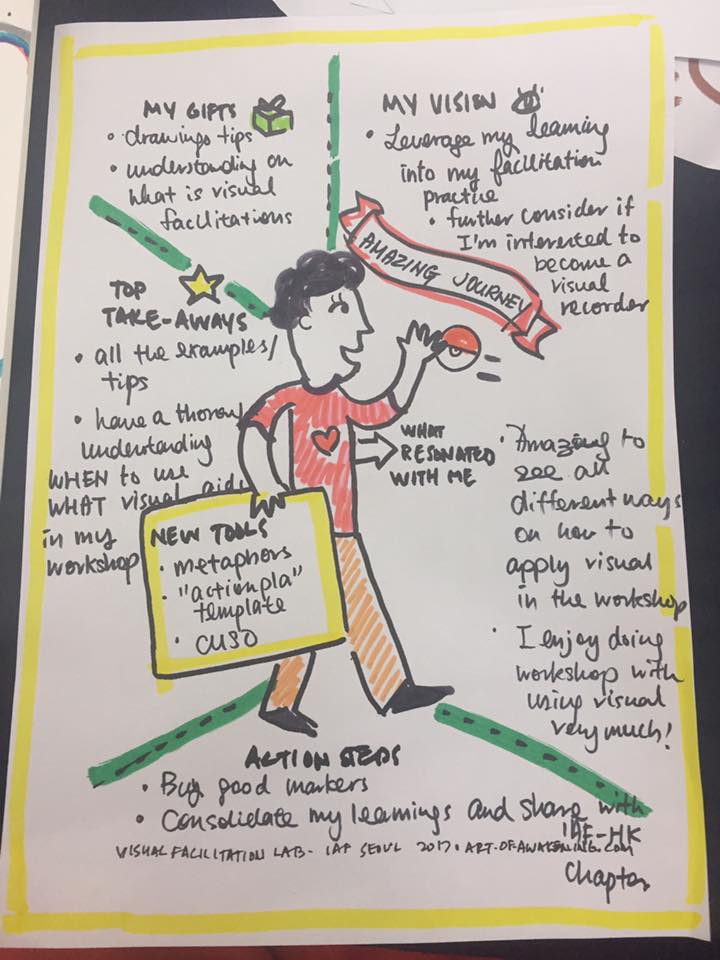 MY GIFTS
• drawings tips
• understanding on
what is visual
facilitations
MY VISION
• Leverage my learning
into my facilitation
practice
• further consider if
I'm interested to
become a
visual
recorder
AMAZING JOURNEY
TOP
TAKE-AWAYS
• all the examples/
tips
• have a thorou
understanding
WHEN to use
WHAT visual aids
in my
workshop
NEW TOOLS
• metaphors
• "actionpla"
template
• CUSO
WHAT
RESONATED
WITH ME
• Amazing to
see all
different ways
on how to
apply visual
in the workshop
• I enjoy doing
workshop with
using visual
very much!
ACTION STEPS
• Buy good markers
• Consolidate my learnings and share with
IAF-HK
Chapter
VISUAL FACILITATION LAB - IAF SEOUL 2017. ART-OF-AWAKENING.COM